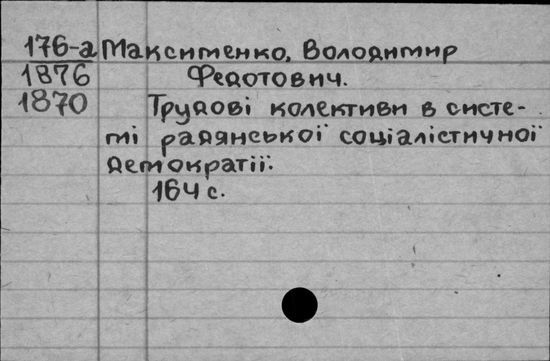 176-а Максименко, Володимир
1876 Федотович.
1870 Трудові колективи в систе-
мі радянської соціалістичної
демократії.
164 с.